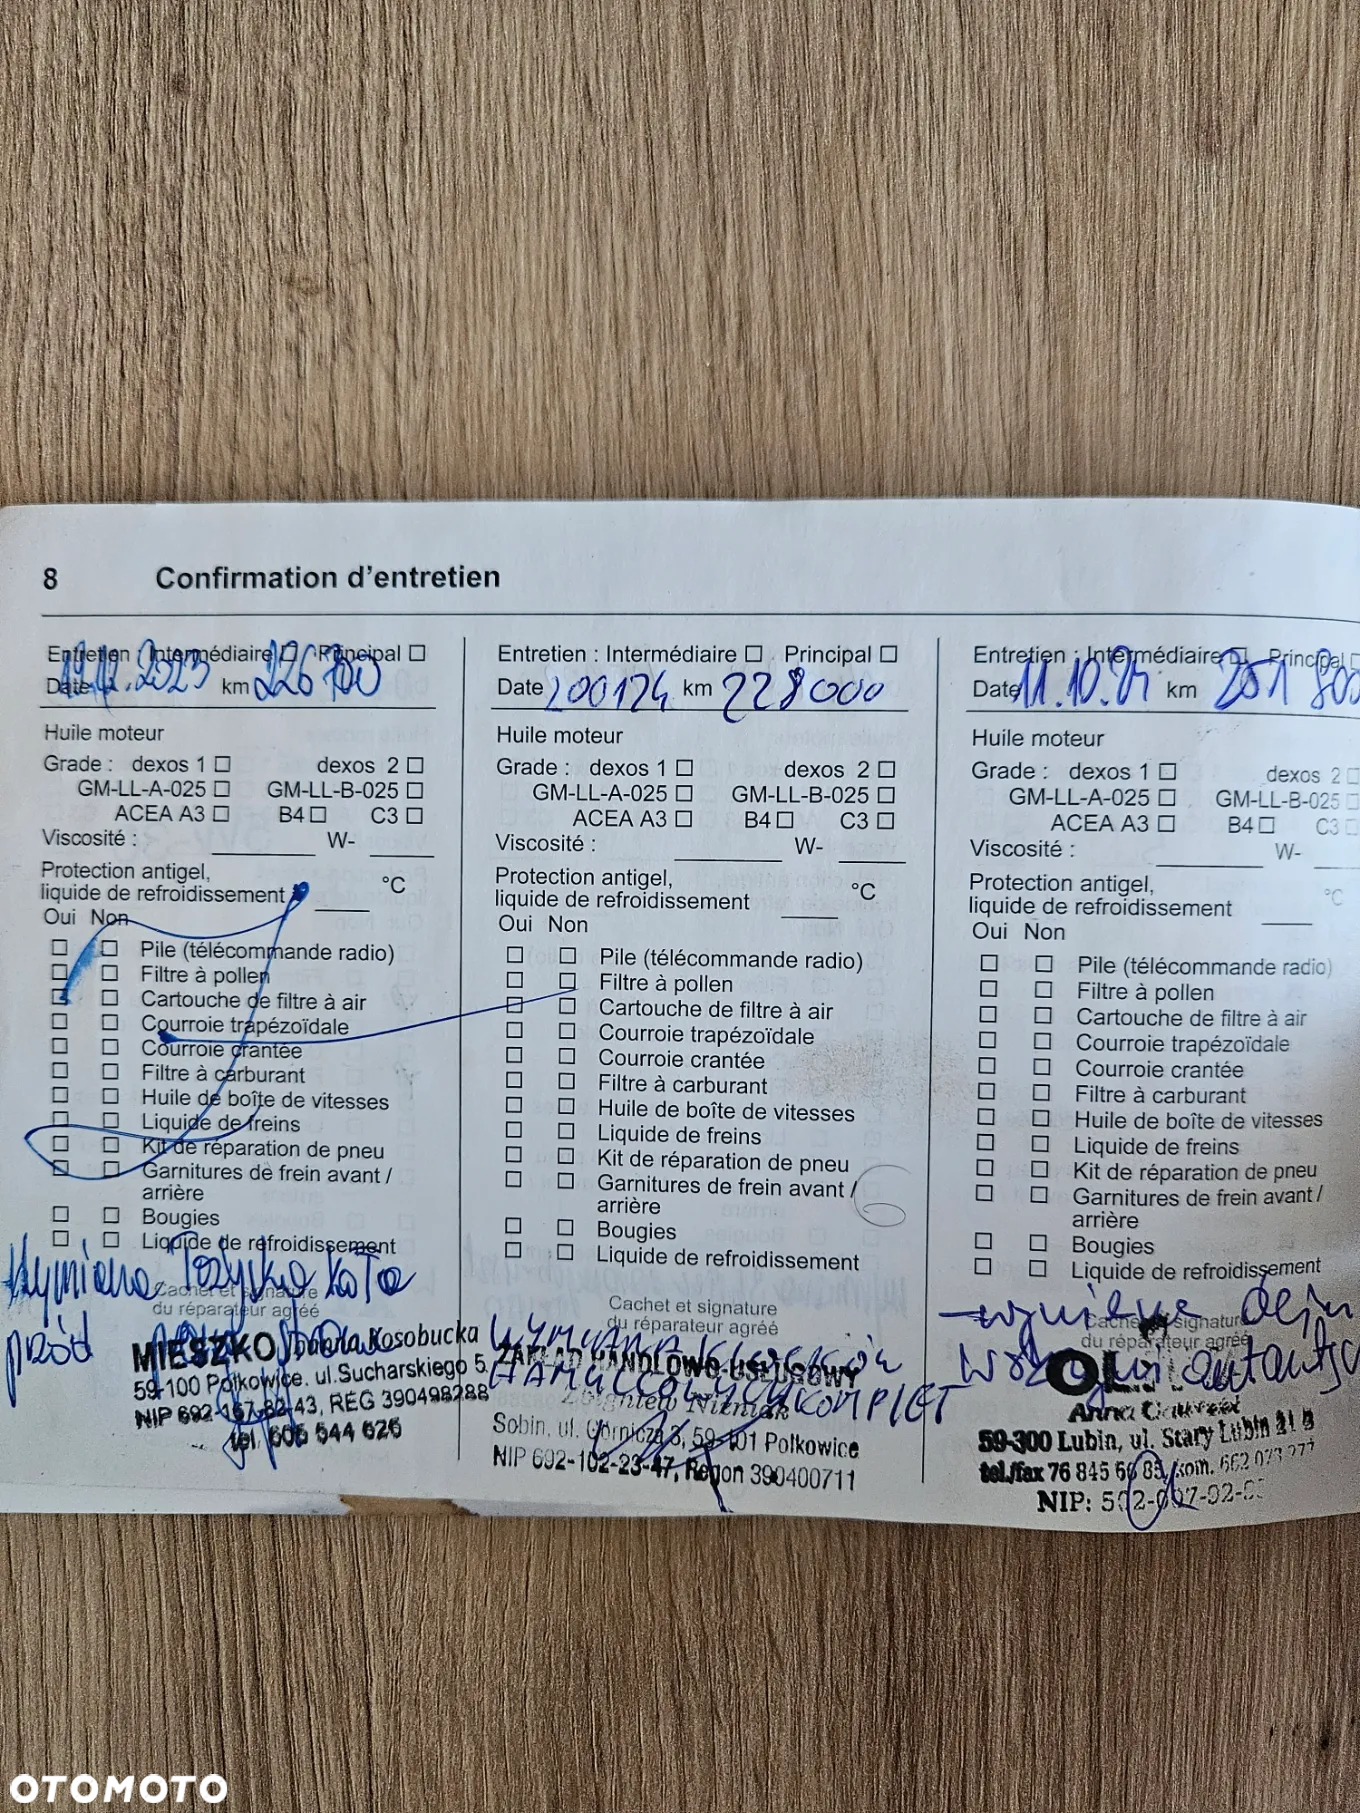 8 Confirmation d'entretien
Entretien : Intermédiaire ☐ Principal ☐
Date 12.2023 km 226700
Huile moteur
Grade : dexos 1 ☐ dexos 2 ☐
GM-LL-A-025 ☐ GM-LL-B-025 ☐
ACEA A3 ☐ B4 ☐ C3 ☐
Viscosité : W-
Protection antigel,
liquide de refroidissement °C
Oui Non
☐ ☐ Pile (télécommande radio)
☐ ☐ Filtre à pollen
☐ ☐ Cartouche de filtre à air
☐ ☐ Courroie trapézoïdale
☐ ☐ Courroie crantée
☐ ☐ Filtre à carburant
☐ ☐ Huile de boîte de vitesses
☐ ☐ Liquide de freins
☐ ☐ Kit de réparation de pneu
☐ ☐ Garnitures de frein avant /
arrière
☐ ☐ Bougies
☐ ☐ Liquide de refroidissement
Wymiana Łożyska Koła
Cachet et signature
du réparateur agréé
przód
MIESZKO Kosobucka
59-100 Polkowice, ul.Sucharskiego 5,
NIP 692-167-82-43, REG 390498288
tel. 606 644 626
Entretien : Intermédiaire ☐ Principal ☐
Date 200124 km 228000
Huile moteur
Grade : dexos 1 ☐ dexos 2 ☐
GM-LL-A-025 ☐ GM-LL-B-025 ☐
ACEA A3 ☐ B4 ☐ C3 ☐
Viscosité : W-
Protection antigel,
liquide de refroidissement °C
Oui Non
☐ ☐ Pile (télécommande radio)
☐ ☐ Filtre à pollen
☐ ☐ Cartouche de filtre à air
☐ ☐ Courroie trapézoïdale
☐ ☐ Courroie crantée
☐ ☐ Filtre à carburant
☐ ☐ Huile de boîte de vitesses
☐ ☐ Liquide de freins
☐ ☐ Kit de réparation de pneu
☐ ☐ Garnitures de frein avant /
arrière
☐ ☐ Bougies
☐ ☐ Liquide de refroidissement
Cachet et signature
du réparateur agréé
WYMIANA KLOCKÓW
ZAKŁAD HANDLOWO-USŁUGOWY
HAMULCOWYCH KOMPLET
Zbigniew
Sobin, ul. Górnicza 3, 59-101 Polkowice
NIP 692-102-23-47, Regon 390400711
Entretien : Intermédiaire ☐ Principal ☐
Date 11.10.24 km 251 800
Huile moteur
Grade : dexos 1 ☐ dexos 2 ☐
GM-LL-A-025 ☐ GM-LL-B-025 ☐
ACEA A3 ☐ B4 ☐ C3 ☐
Viscosité : W-
Protection antigel,
liquide de refroidissement °C
Oui Non
☐ ☐ Pile (télécommande radio)
☐ ☐ Filtre à pollen
☐ ☐ Cartouche de filtre à air
☐ ☐ Courroie trapézoïdale
☐ ☐ Courroie crantée
☐ ☐ Filtre à carburant
☐ ☐ Huile de boîte de vitesses
☐ ☐ Liquide de freins
☐ ☐ Kit de réparation de pneu
☐ ☐ Garnitures de frein avant /
arrière
☐ ☐ Bougies
☐ ☐ Liquide de refroidissement
Cachet et signature
du réparateur agréé
Anna
59-300 Lubin, ul. Stary Lubin
tel./fax 76 845 66 83, kom. 662 073 277
NIP:
OTOMOTO